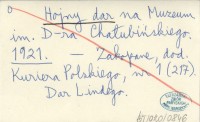 Hojny dar na Muzeum
im. D-ra Chałubińskiego.
1921. — Zakopane, dod.
Kuriera Polskiego, nr 1 (217).
Dar Lindego.